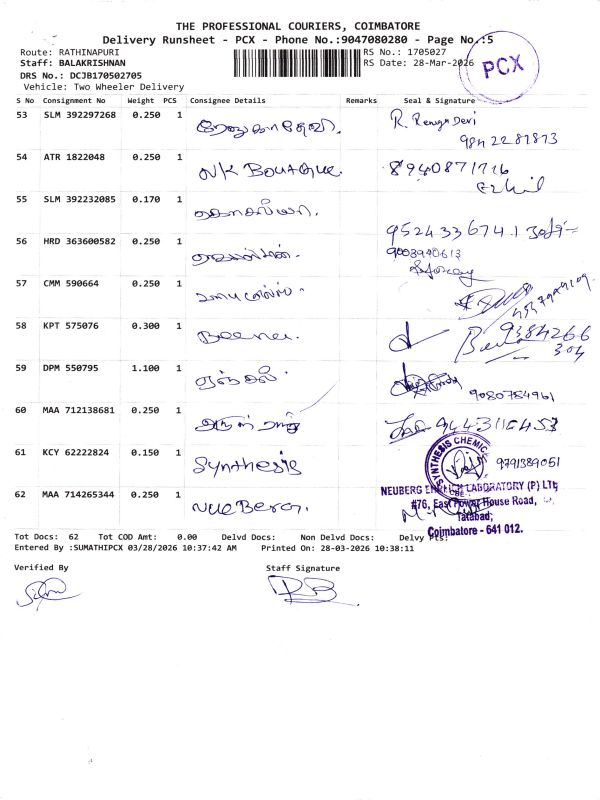 THE PROFESSIONAL COURIERS, COIMBATORE
Delivery Runsheet - PCX - Phone No.:9047080280 - Page No.:5
Route: RATHINAPURI
RS No.: 1705027
Staff: BALAKRISHNAN
RS Date: 28-Mar-2026
PCX
DRS No.: DCJB170502705
Vehicle: Two Wheeler Delivery
S No Consignment No Weight PCS Consignee Details Remarks Seal & Signature
53 SLM 392297268 0.250 1 R. Renuga Devi
9842287873
54 ATR 1822048 0.250 1 NK Boutique. 8940871716
Ezhil
55 SLM 392232085 0.170 1 கௌசல்யா. 9524336741
56 HRD 363600582 0.250 1 9003940613
57 CMM 590664 0.250 1
58 KPT 575076 0.300 1 Beena. 9384266
304
59 DPM 550795 1.100 1 ஏஞ்சல். 9080784961
60 MAA 712138681 0.250 1 9443116453
61 KCY 62222824 0.150 1 Synthesis SYNTHESIS CHEMIC 9791389051
62 MAA 714265344 0.250 1 NEUBERG EHRLICH LABORATORY (P) LTD
#76, East Power House Road,
Tatabad,
Coimbatore - 641 012.
Tot Docs: 62 Tot COD Amt: 0.00 Delvd Docs: Non Delvd Docs: Delvy Pts:
Entered By :SUMATHIPCX 03/28/2026 10:37:42 AM Printed On: 28-03-2026 10:38:11
Verified By Staff Signature